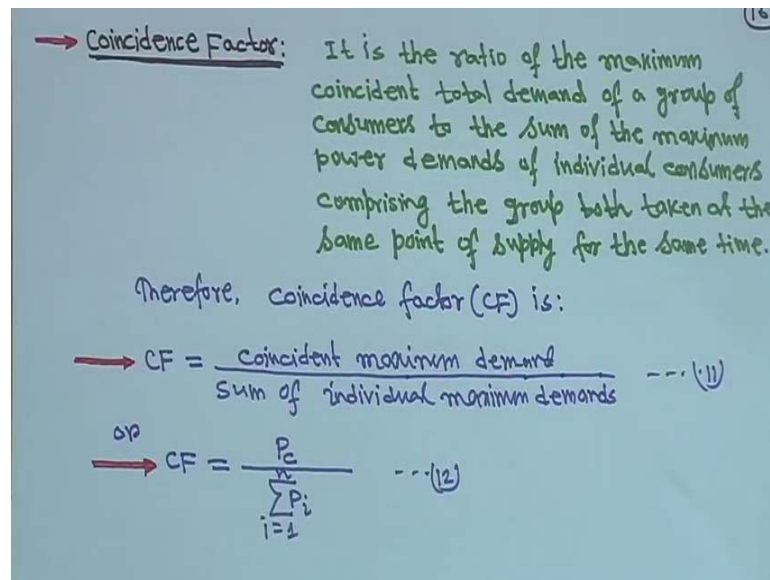 (16
→ Coincidence Factor: It is the ratio of the maximum
coincident total demand of a group of
consumers to the sum of the maximum
power demands of individual consumers
comprising the group both taken at the
same point of supply for the same time.
Therefore, coincidence factor (CF) is:
→ CF = coincident maximum demand / sum of individual maximum demands ---(11)
or
→ CF = Pc / n∑i=1 Pi ---(12)